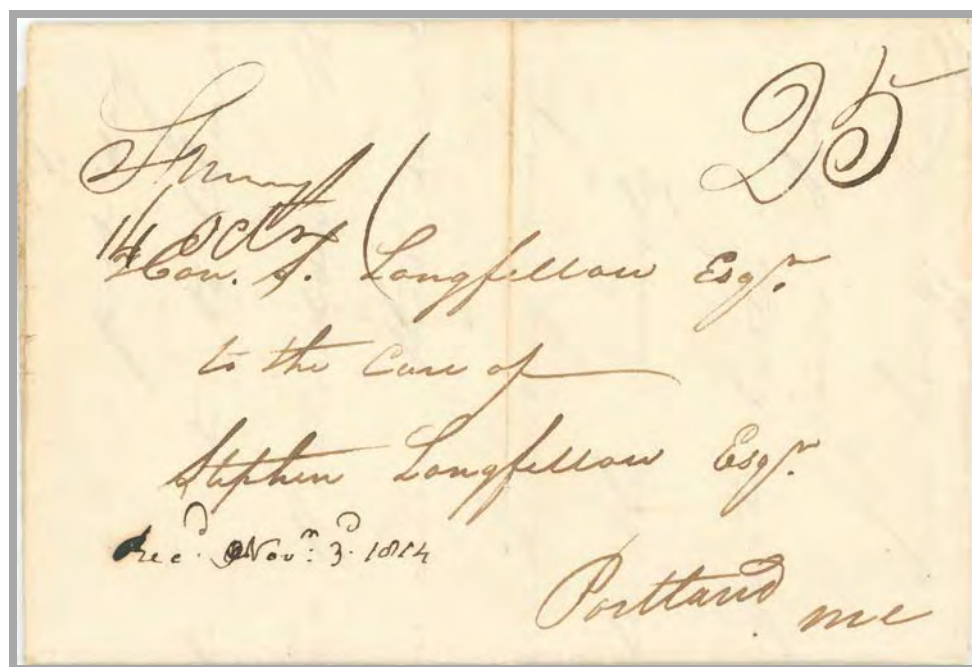 25
14 Octr
Hon. S. Longfellow Esqr.
to the Care of
Stephen Longfellow Esqr.
Recd. Novr. 3d. 1814
Portland me